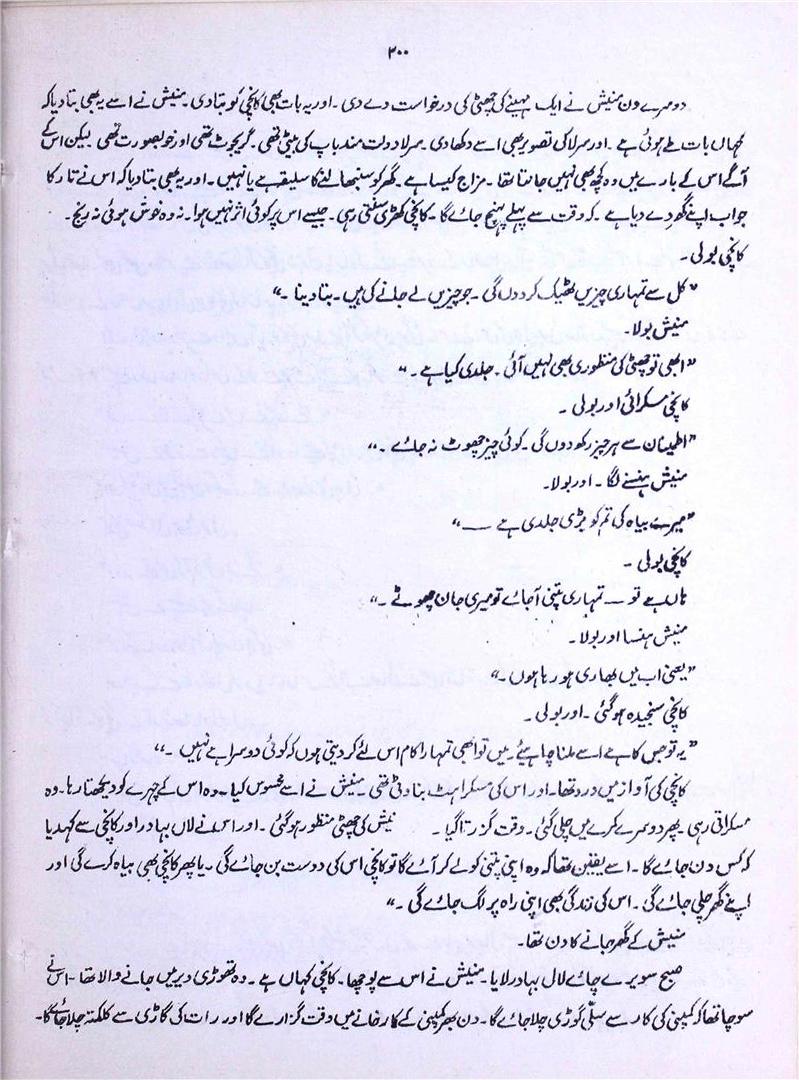 ۲۰۰
دوسرے دن منیش نے ایک مہینے کی چھٹی کی درخواست دے دی۔ اور یہ بات بھی کانچی کو بتا دی۔ منیش نے اسے یہ بھی بتا دیا کہ
کہاں بات طے ہوئی ہے۔ اور سرلا کی تصویر بھی اسے دکھا دی۔ سرلا دولت مند باپ کی بیٹی تھی۔ گریجوٹ تھی اور خوبصورت تھی لیکن اس کے
آگے اس کے بارے میں وہ کچھ بھی نہیں جانتا تھا۔ مزاج کیسا ہے۔ گھر کو سنبھالنے کا سلیقہ ہے یا نہیں۔ اور یہ بھی بتا دیا کہ اس نے تار کا
جواب اپنے گھر دے دیا ہے۔ کہ وقت سے پہلے پہنچ جائے گا۔ کانچی کھڑی سنتی رہی۔ جیسے اس پر کوئی اثر نہیں ہوا۔ نہ وہ خوش ہوئی نہ رنج۔
کانچی بولی۔
”کل سے تمہاری چیزیں ٹھیک کردوں گی۔ جو چیزیں لے جانے کی ہیں۔ بتا دینا۔“
منیش بولا۔
”ابھی تو چھٹی کی منظوری بھی نہیں آئی۔ جلدی کیا ہے۔“
کانچی مسکرائی اور بولی۔
”اطمینان سے ہر چیز رکھ دوں گی۔ کوئی چیز چھوٹ نہ جائے۔“
منیش ہنسنے لگا۔ اور بولا۔
”میرے بیاہ کی تم کو بڑی جلدی ہے ——“
کانچی بولی۔
ہاں ہے تو — تمہاری پتنی آجائے تو میری جان چھوٹے۔“
منیش ہنسا اور بولا۔
”یعنی اب میں بھاری ہو رہا ہوں۔“
کانچی سنجیدہ ہوگئی۔ اور بولی۔
”یہ تو جس کا ہے اسے ملنا چاہیئے۔ میں تو ابھی تمہارا کام اس لئے کر دیتی ہوں کہ کوئی دوسرا ہے نہیں۔“
کانچی کی آواز میں درد تھا۔ اور اس کی مسکراہٹ بناوٹی تھی۔ منیش نے اسے محسوس کیا۔ وہ اس کے چہرے کو دیکھتا رہا۔ وہ
مسکراتی رہی۔ پھر دوسرے کمرے میں چلی گئی۔ وقت گزرتا گیا۔ نیش کی چھٹی منظور ہو گئی۔ اور اس نے لال بہادر اور کانچی سے کہدیا
کہ کس دن جائے گا۔ اسے یقین تھا کہ وہ اپنی پتنی کو لے کر آئے گا تو کانچی اس کی دوست بن جائے گی۔ یا پھر کانچی بھی بیاہ کرے گی اور
اپنے گھر چلی جائے گی۔ اس کی زندگی بھی اپنی راہ پر لگ جائے گی۔“
منیش کے گھر جانے کا دن تھا۔
صبح سویرے چائے لال بہادر لایا۔ منیش نے اس سے پوچھا۔ کانچی کہاں ہے۔ وہ تھوڑی دیر میں جانے والا تھا۔ اس نے
سوچا تھا کہ کمپنی کی کار سے سلی گوڑی چلا جائے گا۔ دن بھر کمپنی کے کارخانے میں وقت گزارے گا اور رات کی گاڑی سے کلکتہ چلا جائے گا۔